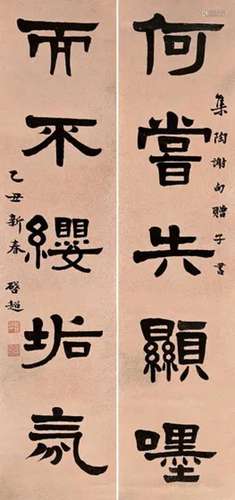 何嘗失顯嘿
集陶謝句贈子書
而不纓垢氛
乙丑新春 啓超